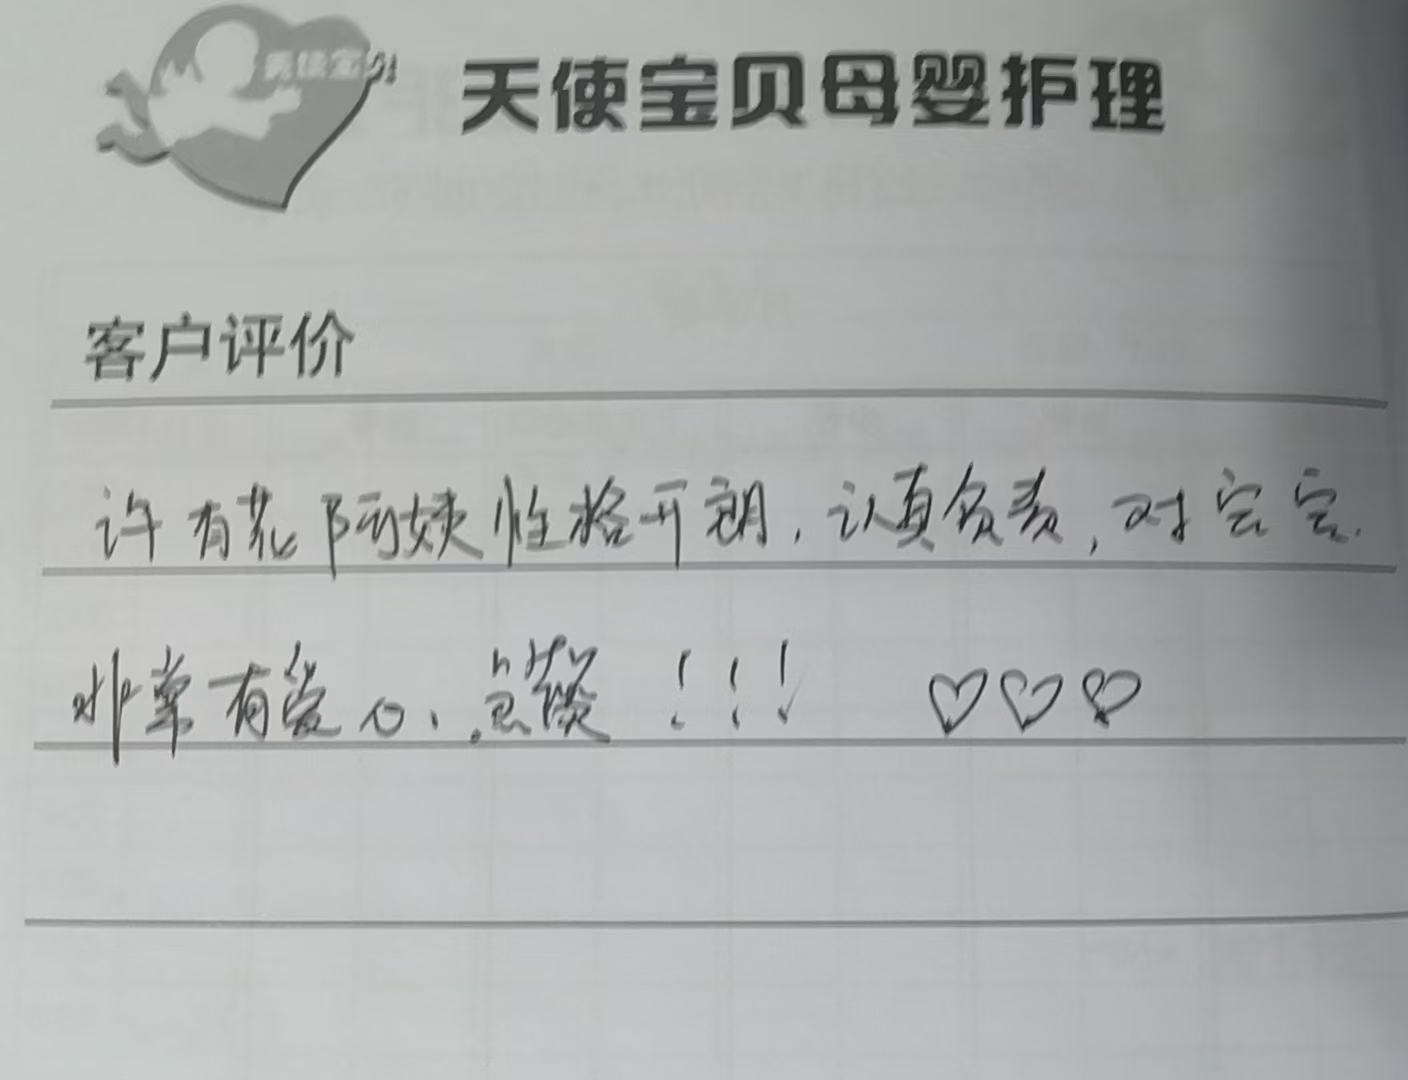 天使宝贝
天使宝贝母婴护理
客户评价
许有花阿姨性格开朗，认真负责，对宝宝
非常有爱心、点赞！！！ ♡♡♡